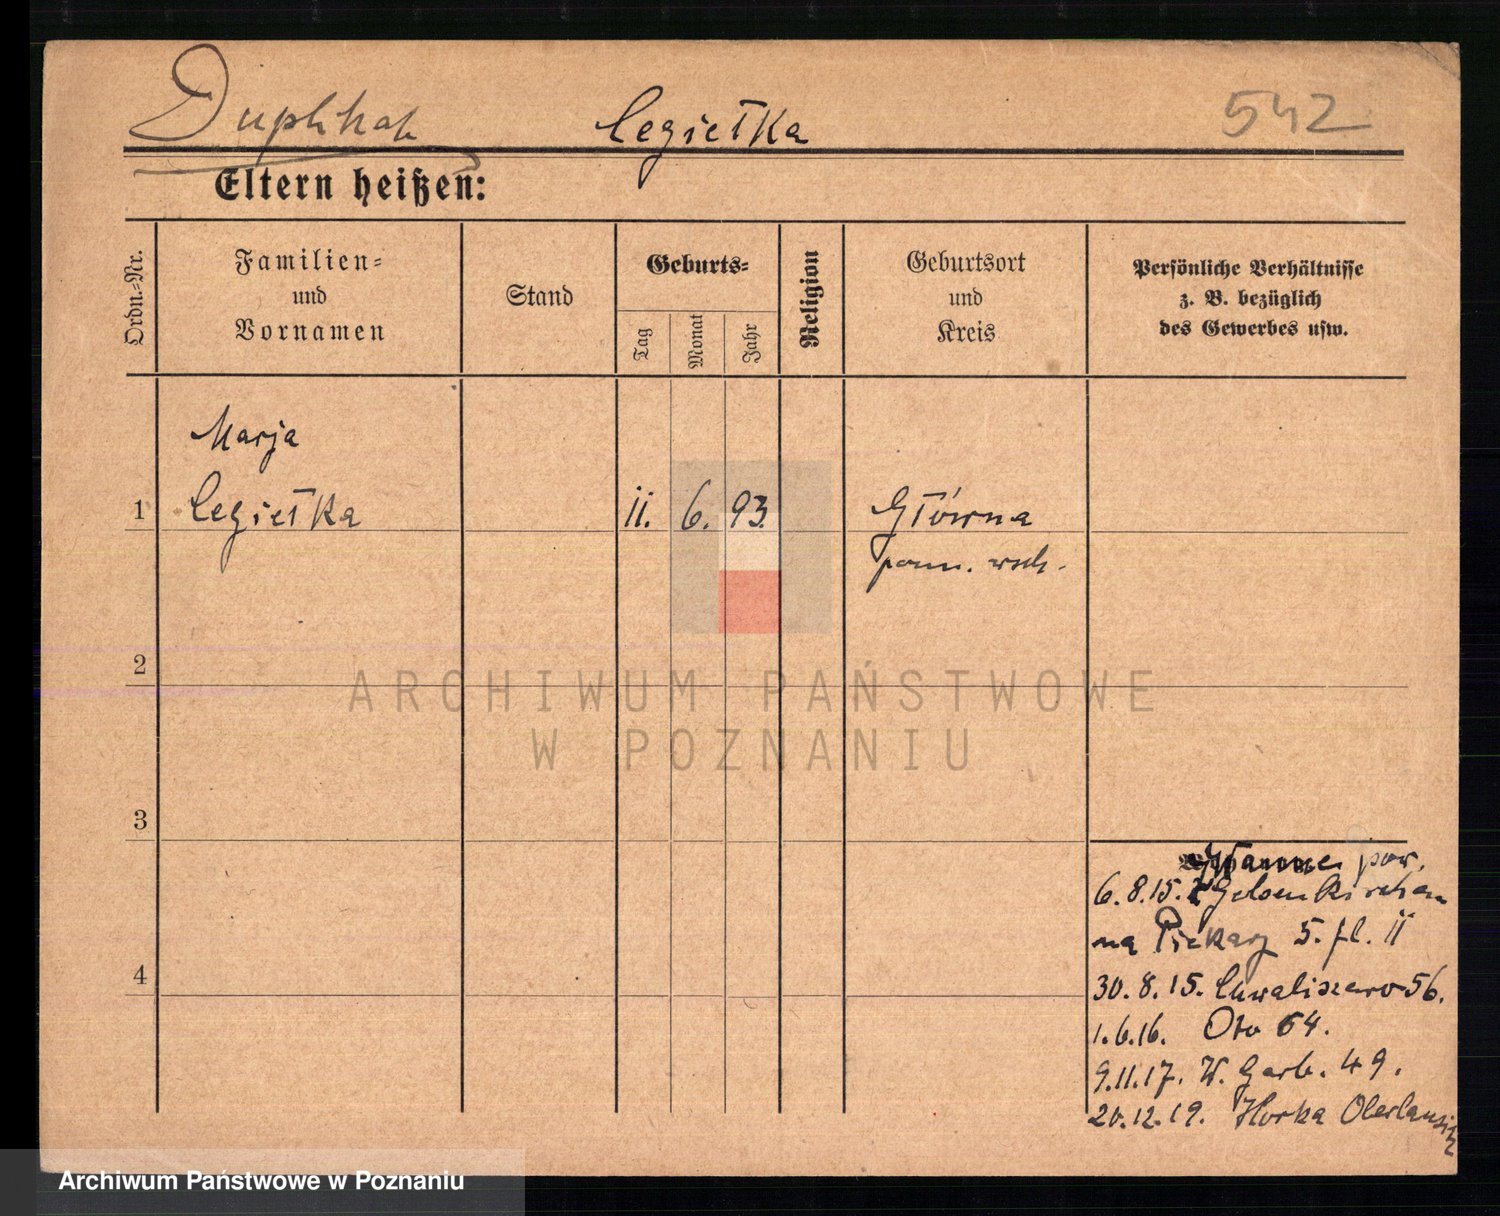 Duplikat Cegiełka 542
Eltern heißen:
Ordn.=Nr.
Familien=
und
Vornamen
Stand
Geburts=
Tag
Monat
Jahr
Religion
Geburtsort
und
Kreis
Persönliche Verhältnisse
z. B. bezüglich
des Gewerbes usw.
Marja
1 Cegiełka 11. 6. 93. Główna
pow. wsch.
2
ARCHIWUM PAŃSTWOWE
W POZNANIU
3
Wanne pow.
6.8.15. Gelsenkirchen
na Piekary 5. fl. II
4
30. 8. 15. Chwaliszewo 56.
1.6.16. 64.
9.11.17. W. Garb. 49.
20.12.19. Horka Oberlausitz
Archiwum Państwowe w Poznaniu